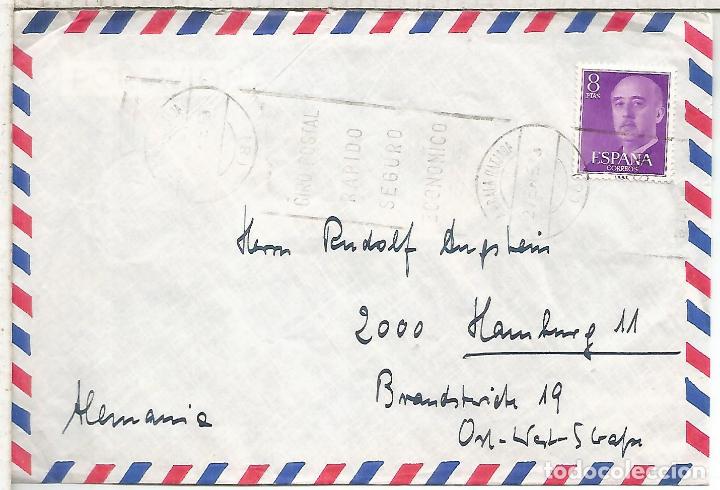 8
PTAS
ESPAÑA
CORREOS
GIRO POSTAL
RAPIDO
SEGURO
ECONOMICO
Herrn Rudolf Augstein
2000 Hamburg 11
Brandstwiete 19
Ost-West-Straße
Alemania
todocoleccion